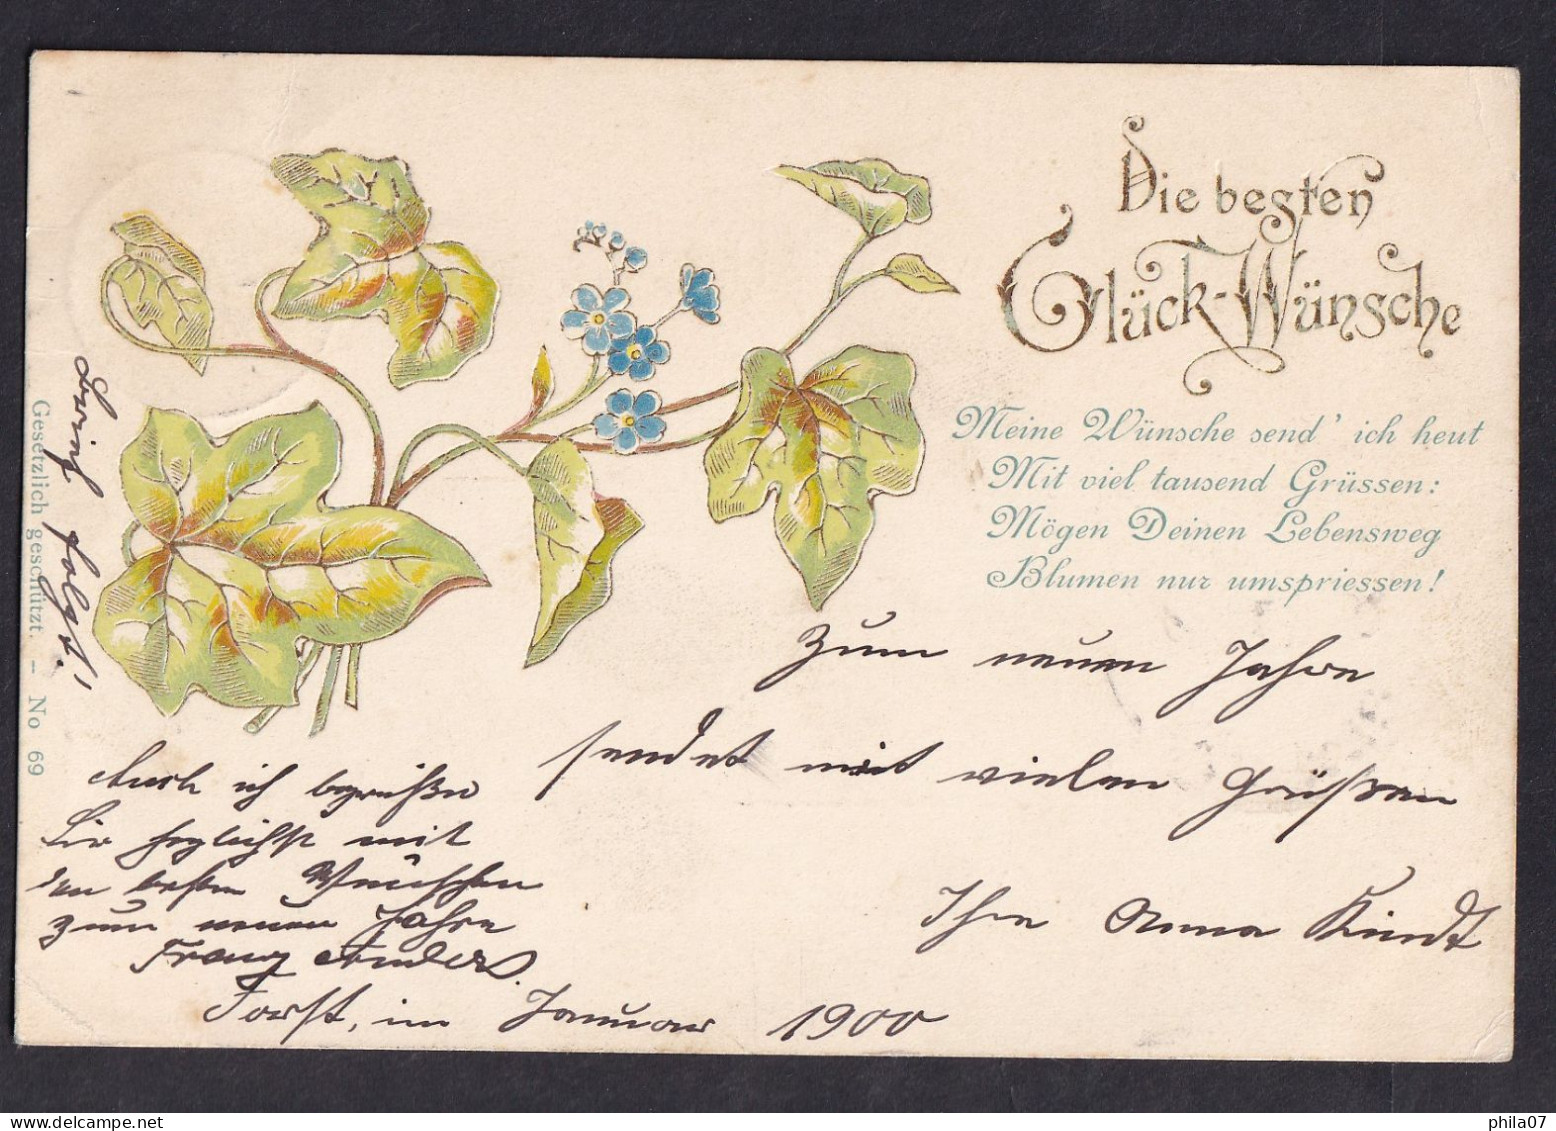 Die besten
Glück-Wünsche
Meine Wünsche send' ich heut
Mit viel tausend Grüssen:
Mögen Deinen Lebensweg
Blumen nur umspriessen!
Zum neuen Jahre
sendet mit vielen Grüßen
Ihre Anna Kindt
Auch ich begrüße
Sie herzlichst mit
den besten Wünschen
zum neuen Jahre
Franz Anders.
Forst, im Januar 1900
Brief folgt!
Gesetzlich geschützt. – No 69
phila07